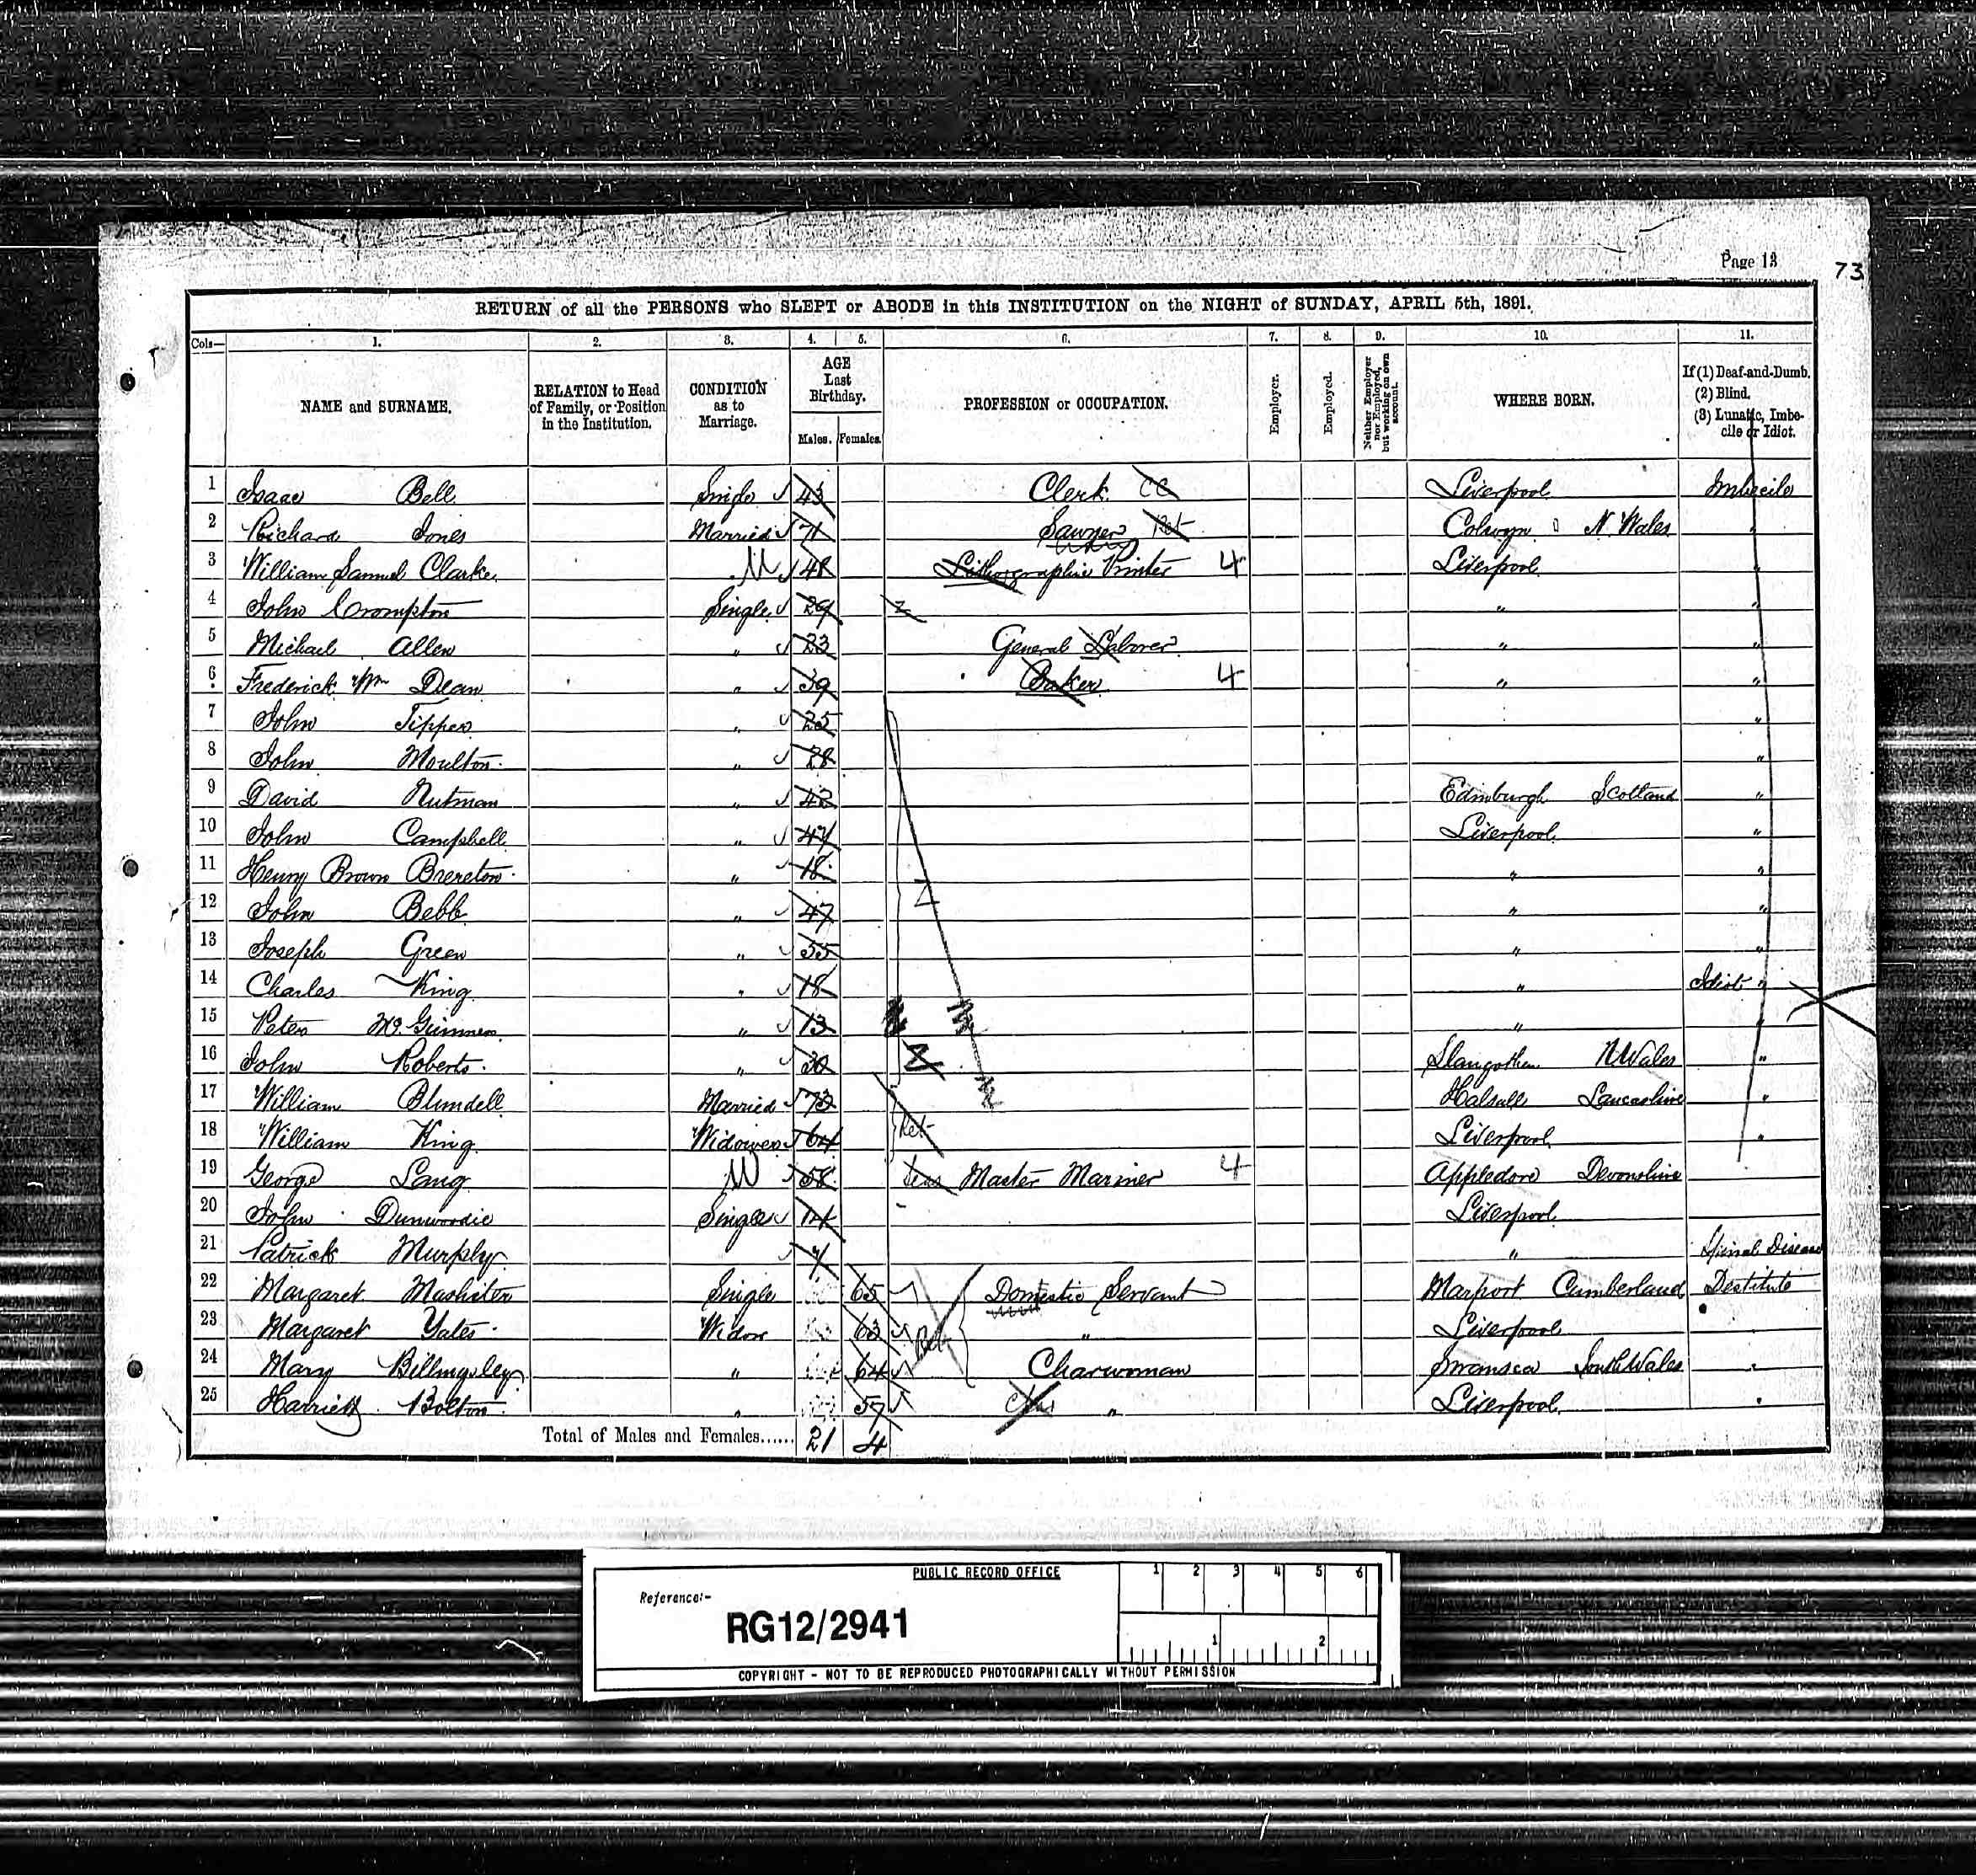 Page 13
73
RETURN of all the PERSONS who SLEPT or ABODE in this INSTITUTION on the NIGHT of SUNDAY, APRIL 5th, 1891.
Cols— 1. 2. 3. 4. 5. 6. 7. 8. 9. 10. 11.
NAME and SURNAME. RELATION to Head of Family, or Position in the Institution. CONDITION as to Marriage. AGE Last Birthday. Males. Females. PROFESSION or OCCUPATION. Employer. Employed. Neither Employer nor Employed, but working on own account. WHERE BORN. If (1) Deaf-and-Dumb. (2) Blind. (3) Lunatic, Imbecile or Idiot.
1 Isaac Bell Single 43 Clerk CC Liverpool Imbecile
2 Richard Jones Married 71 Sawyer Ret Colwyn N. Wales "
3 William Samuel Clarke M 48 Lithographic Printer 4 Liverpool "
4 John Crompton Single 29 " "
5 Michael Allen " 23 General Laborer " "
6 Frederick Wm Dean " 39 Baker 4 " "
7 John Tipper " 25 "
8 John Moulton " 28 "
9 David Nutman " 42 Edinburgh Scotland "
10 John Campbell " 44 Liverpool "
11 Henry Brown Brereton " 18 " "
12 John Bebb " 47 " "
13 Joseph Green " 55 " "
14 Charles King " 18 " Idiot "
15 Peter " 13 " "
16 John Roberts " 30 Llangothen N Wales "
17 William Blundell Married 73 Halsall Lancashire "
18 William King Widower 64 Ret Liverpool "
19 George Lang W 58 Master Mariner 4 Appledore Devonshire
20 John Dunwoodie Single 14 Liverpool
21 Patrick Murphy 7 " Spinal Disease
22 Margaret Single 65 Domestic Servant Marport Cumberland Destitute
23 Margaret Yates Widow 63 Ret " Liverpool "
24 Mary Billingsley " 64 Charwoman Swansea South Wales "
25 Harriett Bolton " 57 " Liverpool "
Total of Males and Females...... 21 4
PUBLIC RECORD OFFICE
1 2 3 4 5 6
Reference:-
RG12/2941
1 2
COPYRIGHT - NOT TO BE REPRODUCED PHOTOGRAPHICALLY WITHOUT PERMISSION